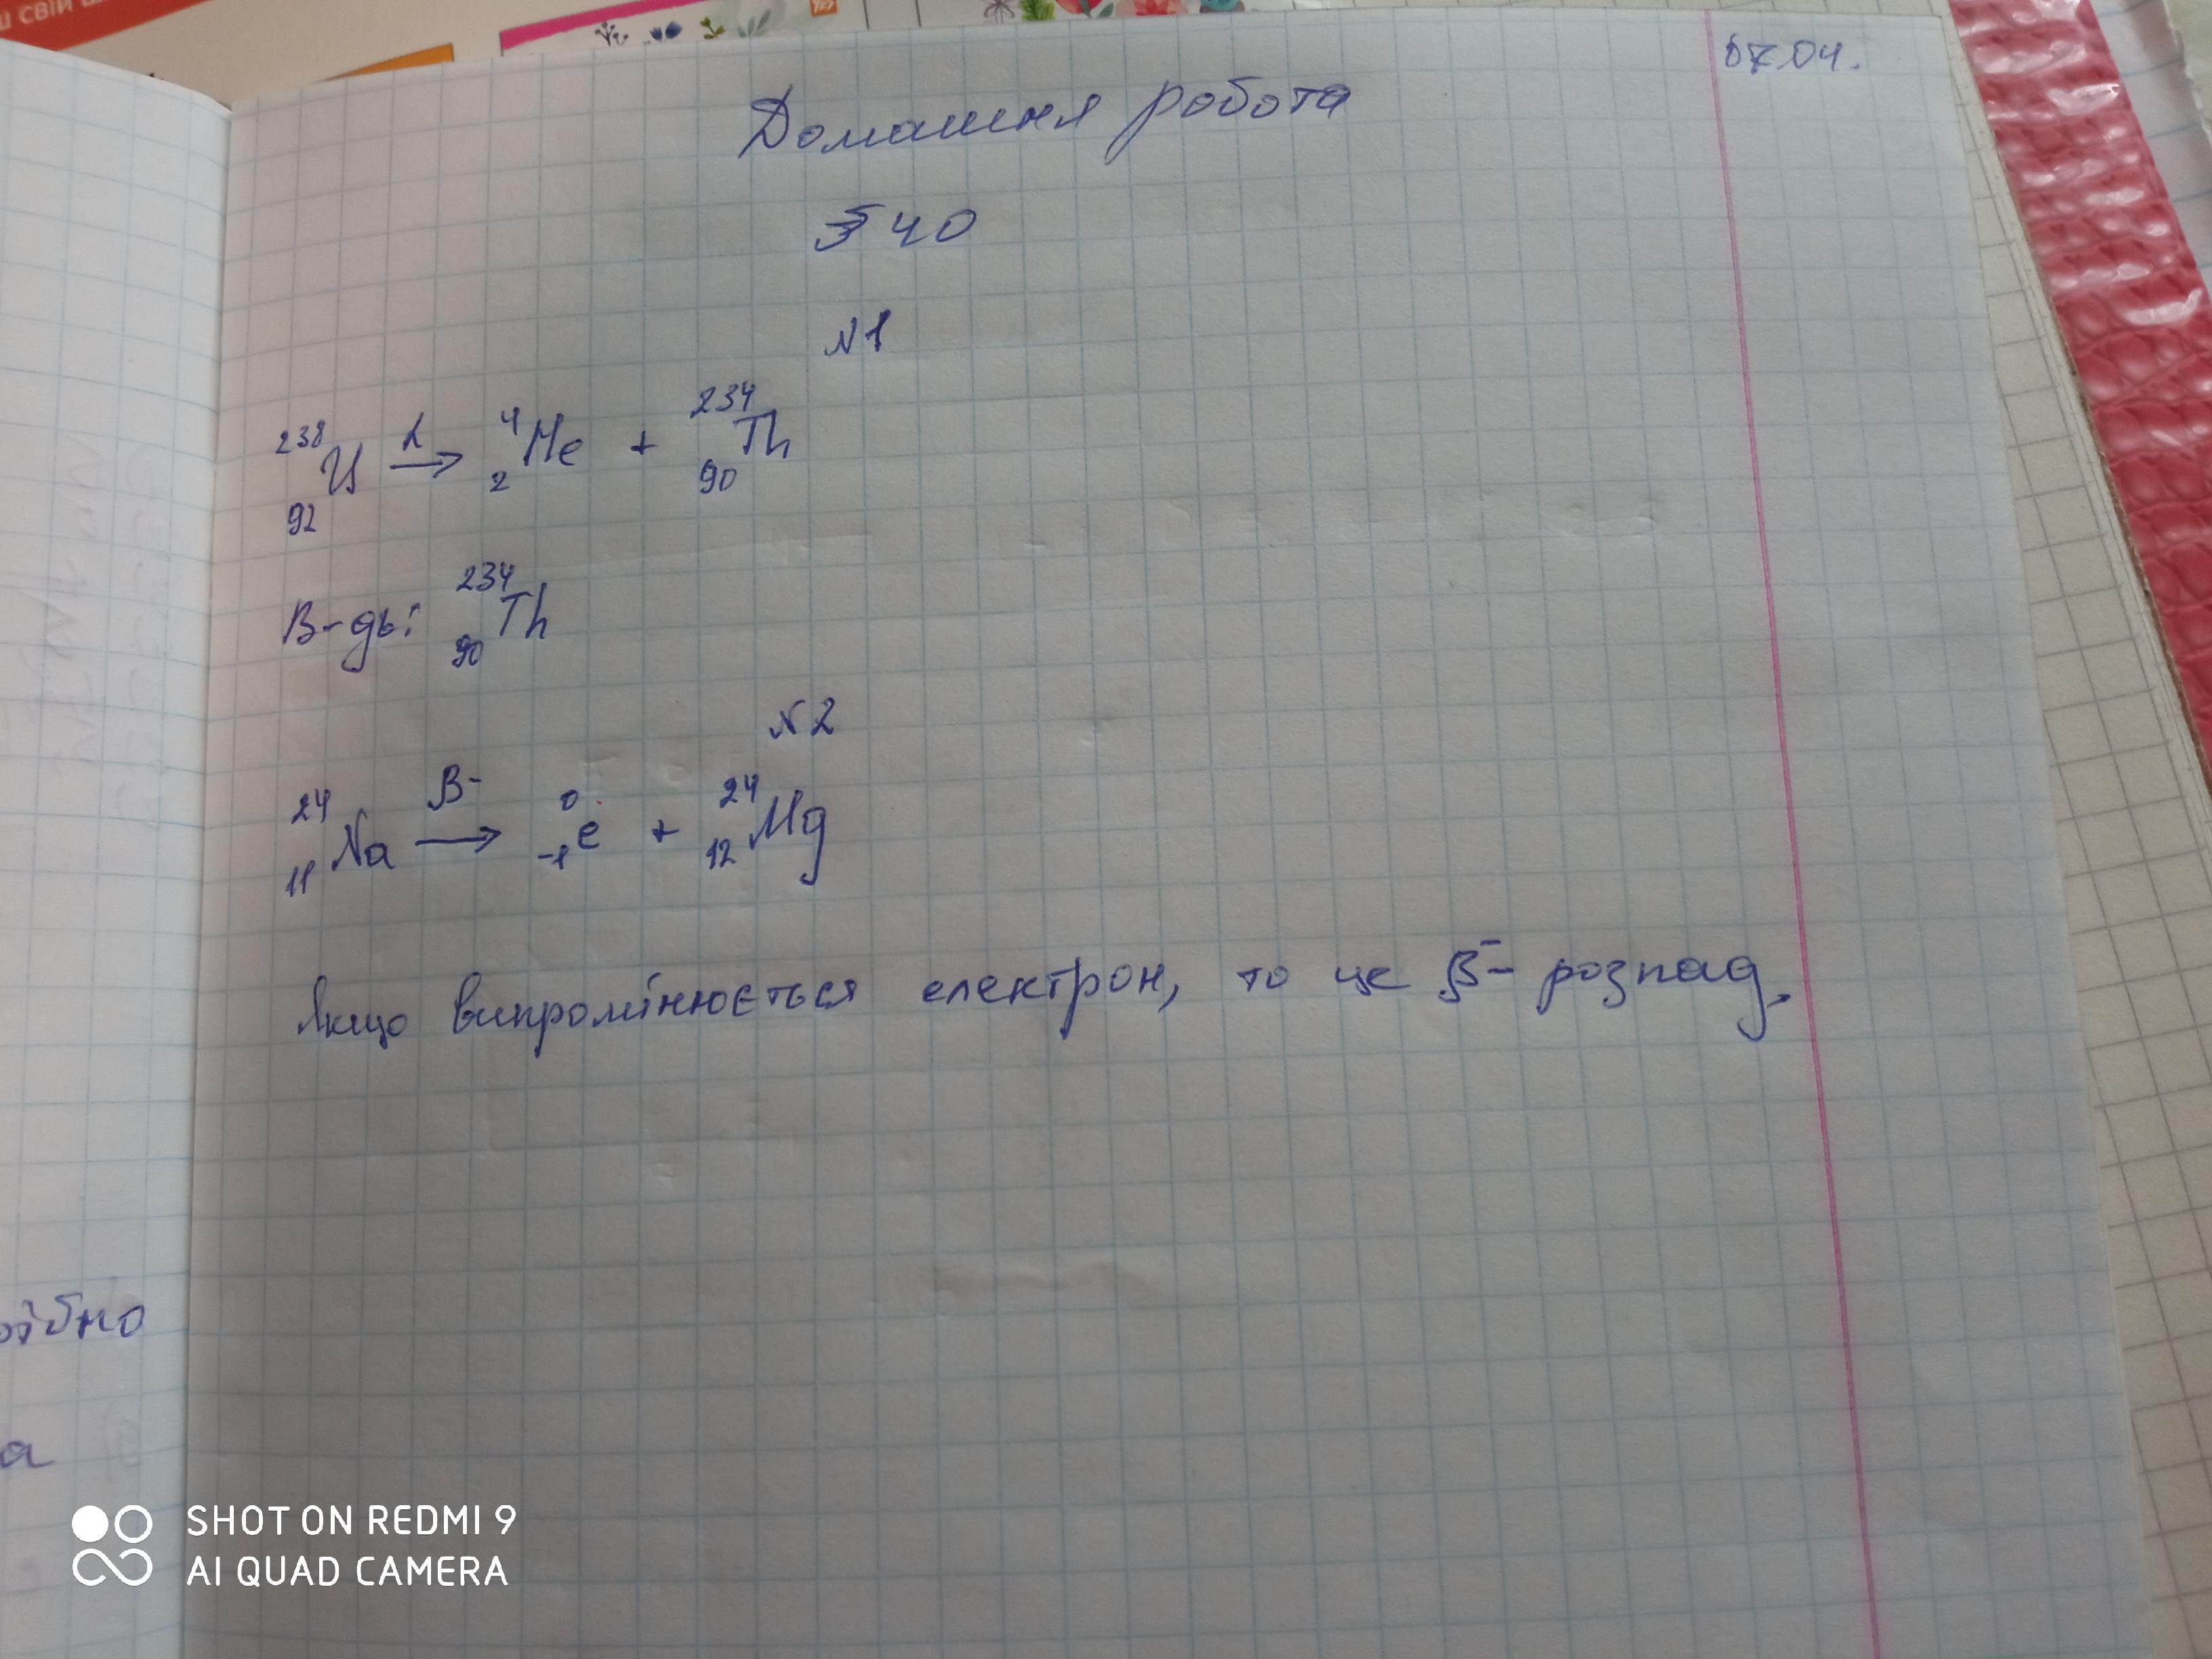 07.04.
Домашня робота
§ 40
N1
²³⁸₉₂U →α ⁴₂He + ²³⁴₉₀Th
В-дь: ²³⁴₉₀Th
N2
²⁴₁₁Na →β- ⁰₋₁e + ²⁴₁₂Mg
Якщо випромінюється електрон, то це β⁻- розпад.
SHOT ON REDMI 9
AI QUAD CAMERA